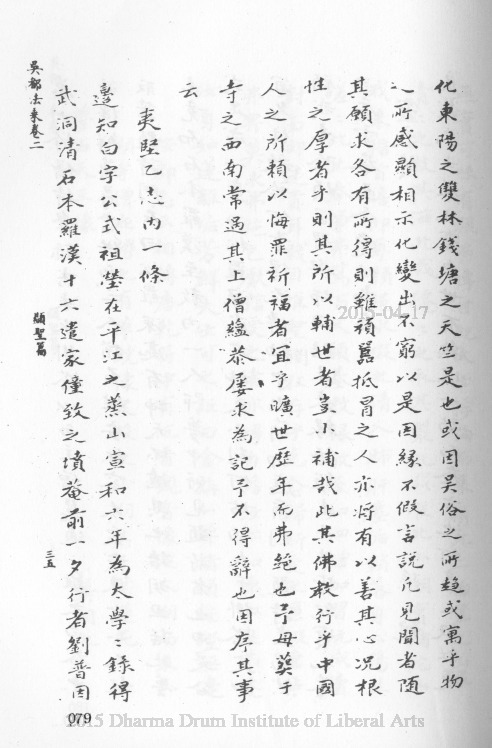 化東陽之雙林錢塘之天竺是也或因吳俗之所趋或寓乎物
之所感顯相示化變出不窮以是因緣不假言說凡見聞者随
其願求各有所得則雖頑嚚抵冒之人亦将有以善其心况根
性之厚者乎則其所以輔世者豈小補哉此其佛教行乎中國
人之所賴以悔罪祈福者宜乎曠世歷年而弗絶也予母葬于
寺之西南常過其上僧蕴恭屡求為記予不得辭也因序其事
云
夷堅乙志内一條
邊知白字公式祖塋在平江之蒸山宣和六年為大學〻錄得
武洞清石本羅漢十六遣家僮致之墳菴前一夕行者劉普因
吳都法乘卷二
顯聖篇
三五
079
2015-04-17
2015 Dharma Drum Institute of Liberal Arts